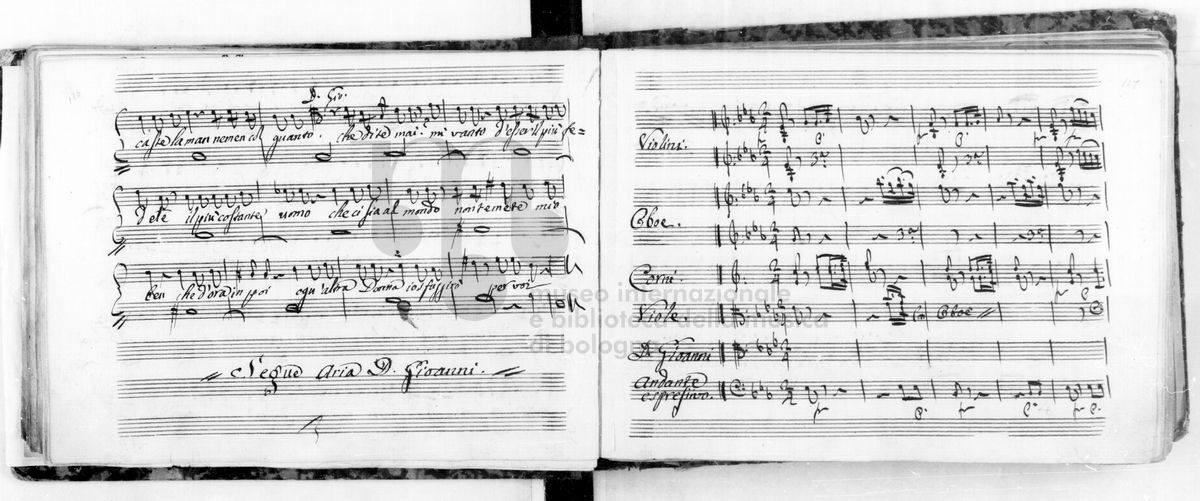 D. Gio.
caste la man nemen col quanto. che dite mai. mi vanto d'esser il più fe=
dele il più costante uomo che ci sia al mondo non temete mio
ben che d'ora in poi ogn'altra Donna io sfuggirò per voi
Segue Aria D. Gioanni.
117
Violini.
Oboe.
Corni.
Viole.
Oboe
D. Gioanni
Andante
espressivo.
museo internazionale
e biblioteca della musica
di bologna